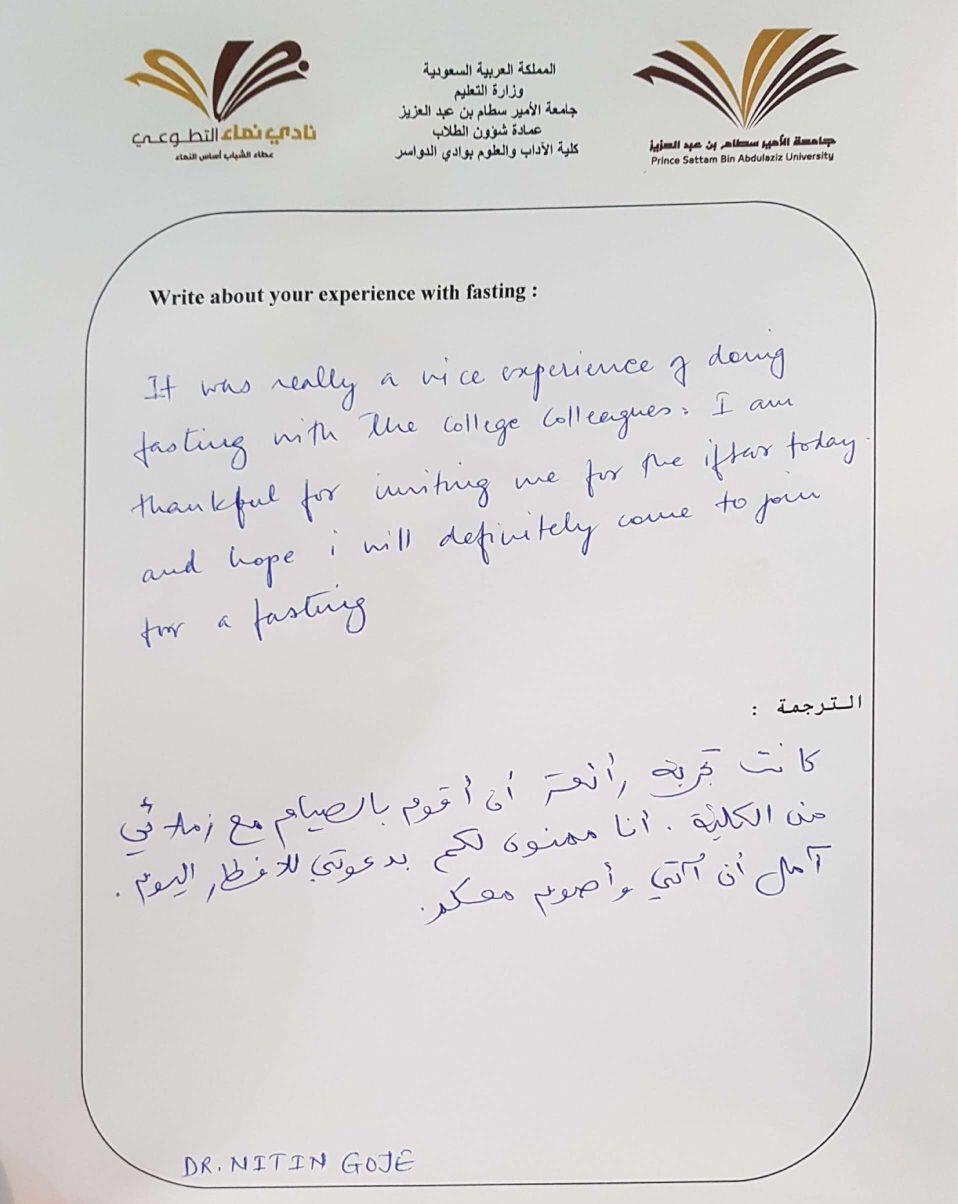 نادي نماء التطوعي
عطاء الشباب أساس النماء
المملكة العربية السعودية
وزارة التعليم
جامعة الأمير سطام بن عبد العزيز
عمادة شؤون الطلاب
كلية الآداب والعلوم بوادي الدواسر
جامعة الأمير سطام بن عبد العزيز
Prince Sattam Bin Abdulaziz University
Write about your experience with fasting :
It was really a nice experience of doing
fasting with the college colleagues. I am
thankful for inviting me for the iftar today.
and hope i will definitely come to join
for a fasting
الترجمة :
كانت تجربة رائعة أن أقوم بالصيام مع زملائي
من الكلية . انا ممنون لكم بدعوتي للافطار اليوم .
آمل أن آتي وأصوم معكم .
DR. NITIN GOJE